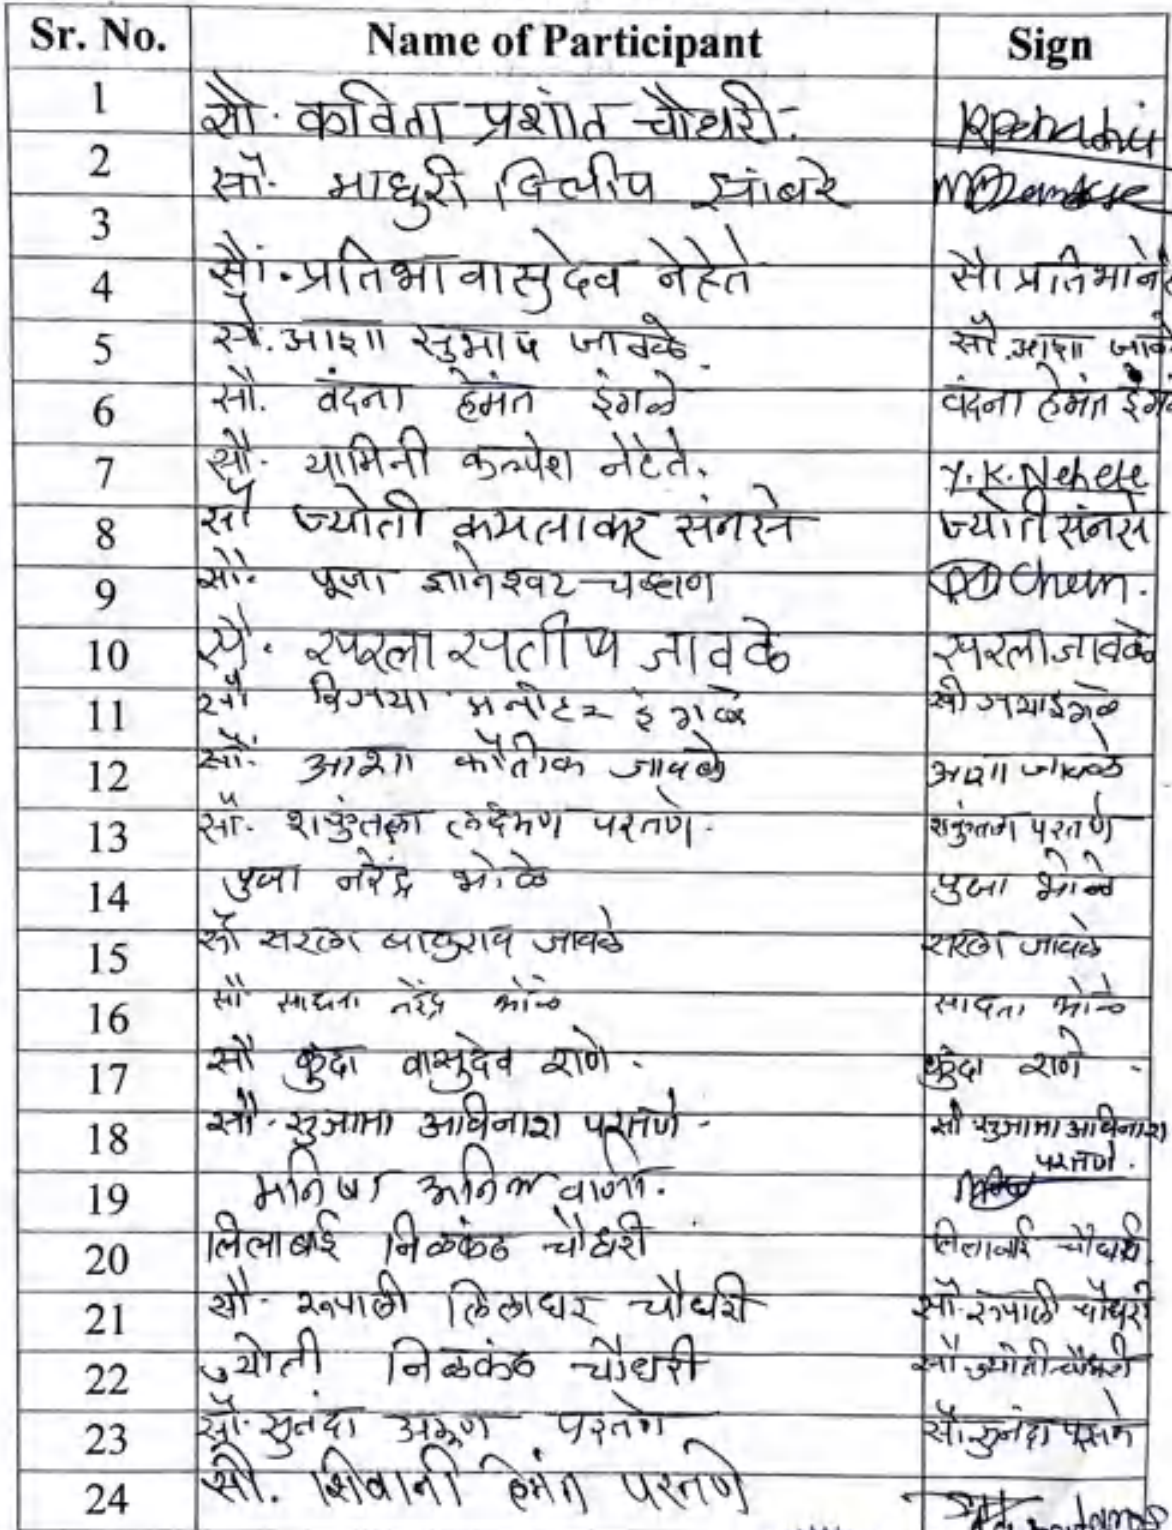 Sr. No. Name of Participant Sign
1 सौ. कविता प्रशांत चौधरी.
2 सौ. माधुरी दिलीप झांबरे
3
4 सौ. प्रतिभा वासुदेव नेहेते सौ प्रतिभा
5 सौ. आशा सुभाष जावळे सौ. आशा
6 सौ. वंदना हेमंत इंगळे वंदना हेमंत
7 सौ. यामिनी कल्पेश नेहेते. Y.K. Nehete
8 सौ ज्योती कमलाकर संनसे ज्योती संनसे
9 सौ. पूजा ज्ञानेश्वर चव्हाण
10 सौ. सरला सतीष जावळे सरला जावळे
11 सौ विजया मनोहर इंगळे
12 सौ. आशा कौतीक जावळे आशा जावळे
13 सौ. शकुंतला लक्ष्मण परतणे. शकुंतला परतणे
14 पुजा नरेंद्र भोळे पुजा भोळे
15 सौ सरला बाबुराव जावळे सरला जावळे
16 सौ साधना नरेंद्र भोळे साधना भोळे
17 सौ कुंदा वासुदेव राणे. कुंदा राणे
18 सौ. सुजाता अविनाश परतणे. सौ सुजाता अविनाश
परतणे.
19 मनिषा अनिल वाणी.
20 लिलाबाई निळकंठ चौधरी लिलाबाई चौधरी
21 सौ. रुपाली लिलाधर चौधरी सौ. रुपाली चौधरी
22 ज्योती निळकंठ चौधरी सौ ज्योती चौधरी
23 सौ. सुनंदा अरूण परतणे सौ. सुनंदा परतणे
24 सौ. शिवानी हेमंत परतणे